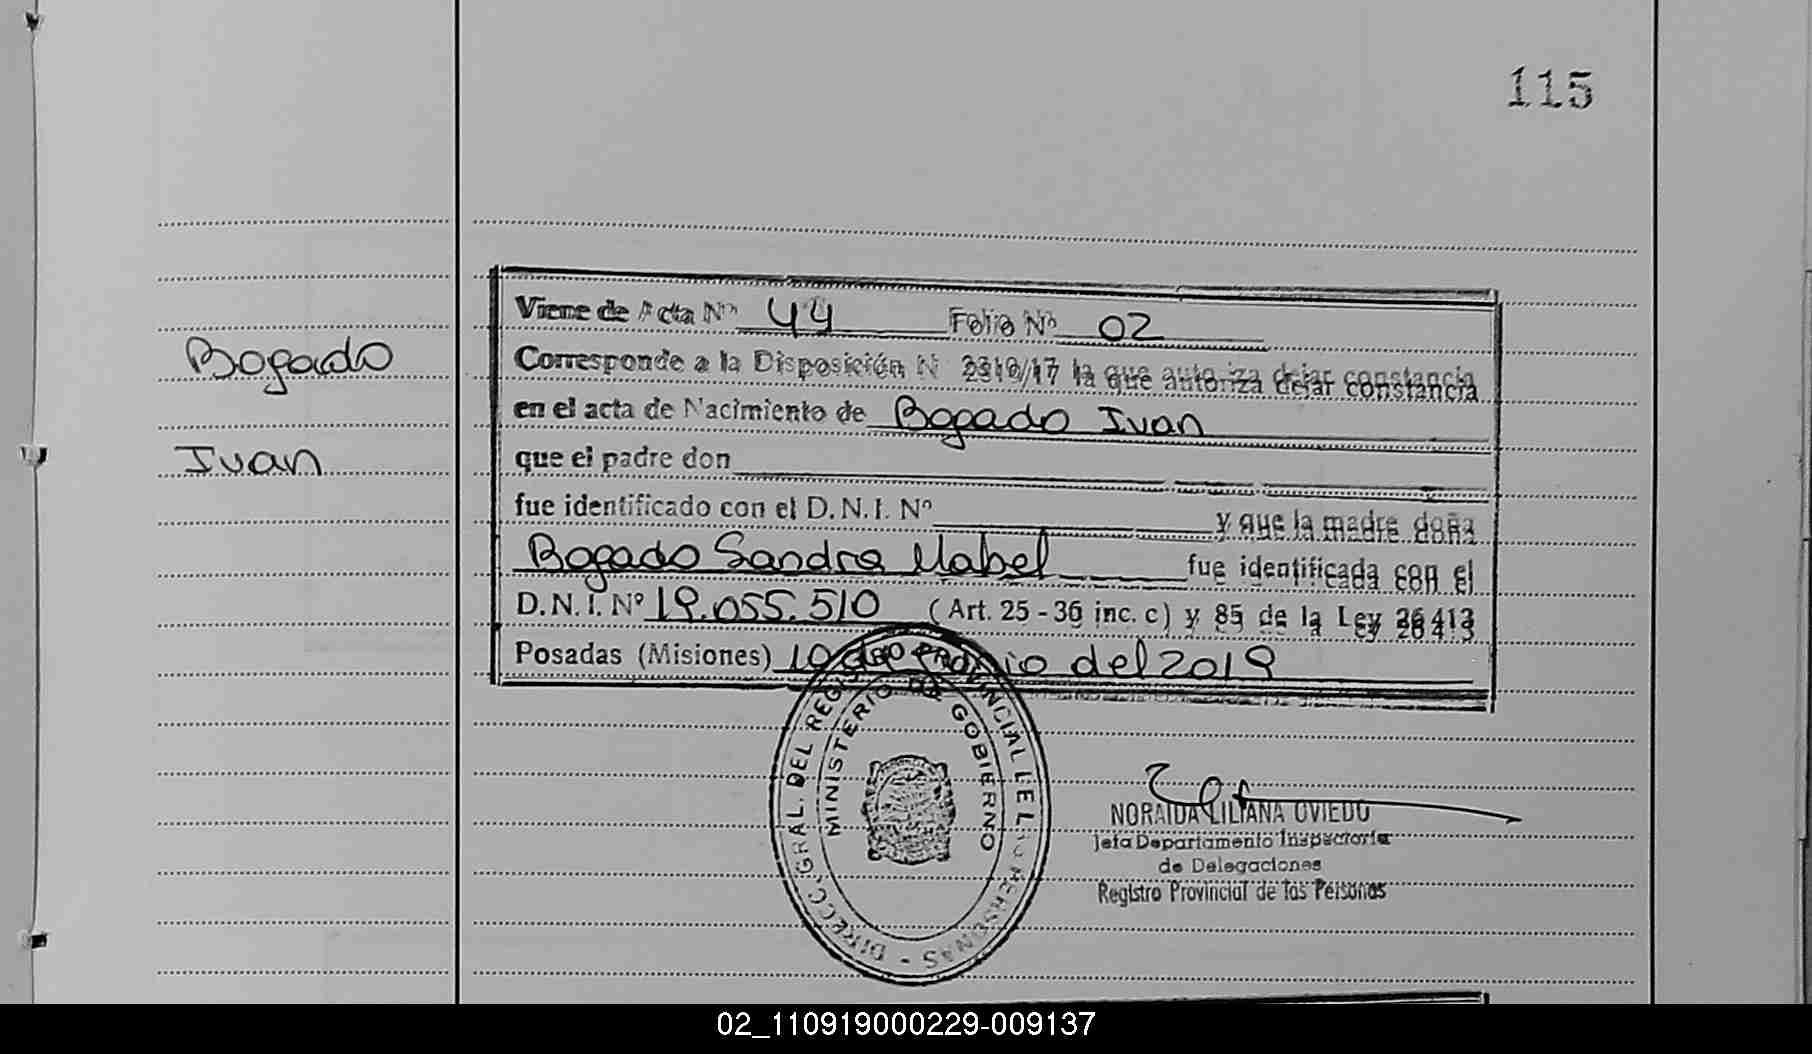 115
Viene de Acta Nº 44 Folio Nº 02
Corresponde a la Disposición N 2310/17 la que autoriza dejar constancia
Bogado
en el acta de Nacimiento de Bogado Ivan
Ivan
que el padre don
fue identificado con el D.N.I. Nº y que la madre doña
Bogado Sandra Mabel fue identificada con el
D.N.I. Nº 19.055.510 (Art. 25 - 36 inc. c) y 85 de la Ley 26413
Posadas (Misiones) 10 de del 2019
DIRECC. GRAL. DEL REGISTRO PROVINCIAL DE PERSONAS -
MINISTERIO DE GOBIERNO
NORAIDA LILIANA OVIEDO
Jefa Departamento Inspectoría
de Delegaciones
Registro Provincial de las Personas
02_110919000229-009137